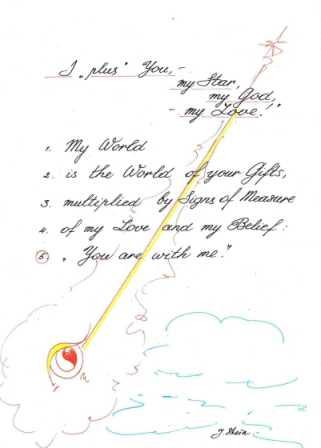 I „plus" You,-
my Star,
my God,
- my Love!"
1. My World
2. is the World of your Gifts,
3. multiplied by Signs of Measure
4. of my Love and my Belief:
5. „You are with me."